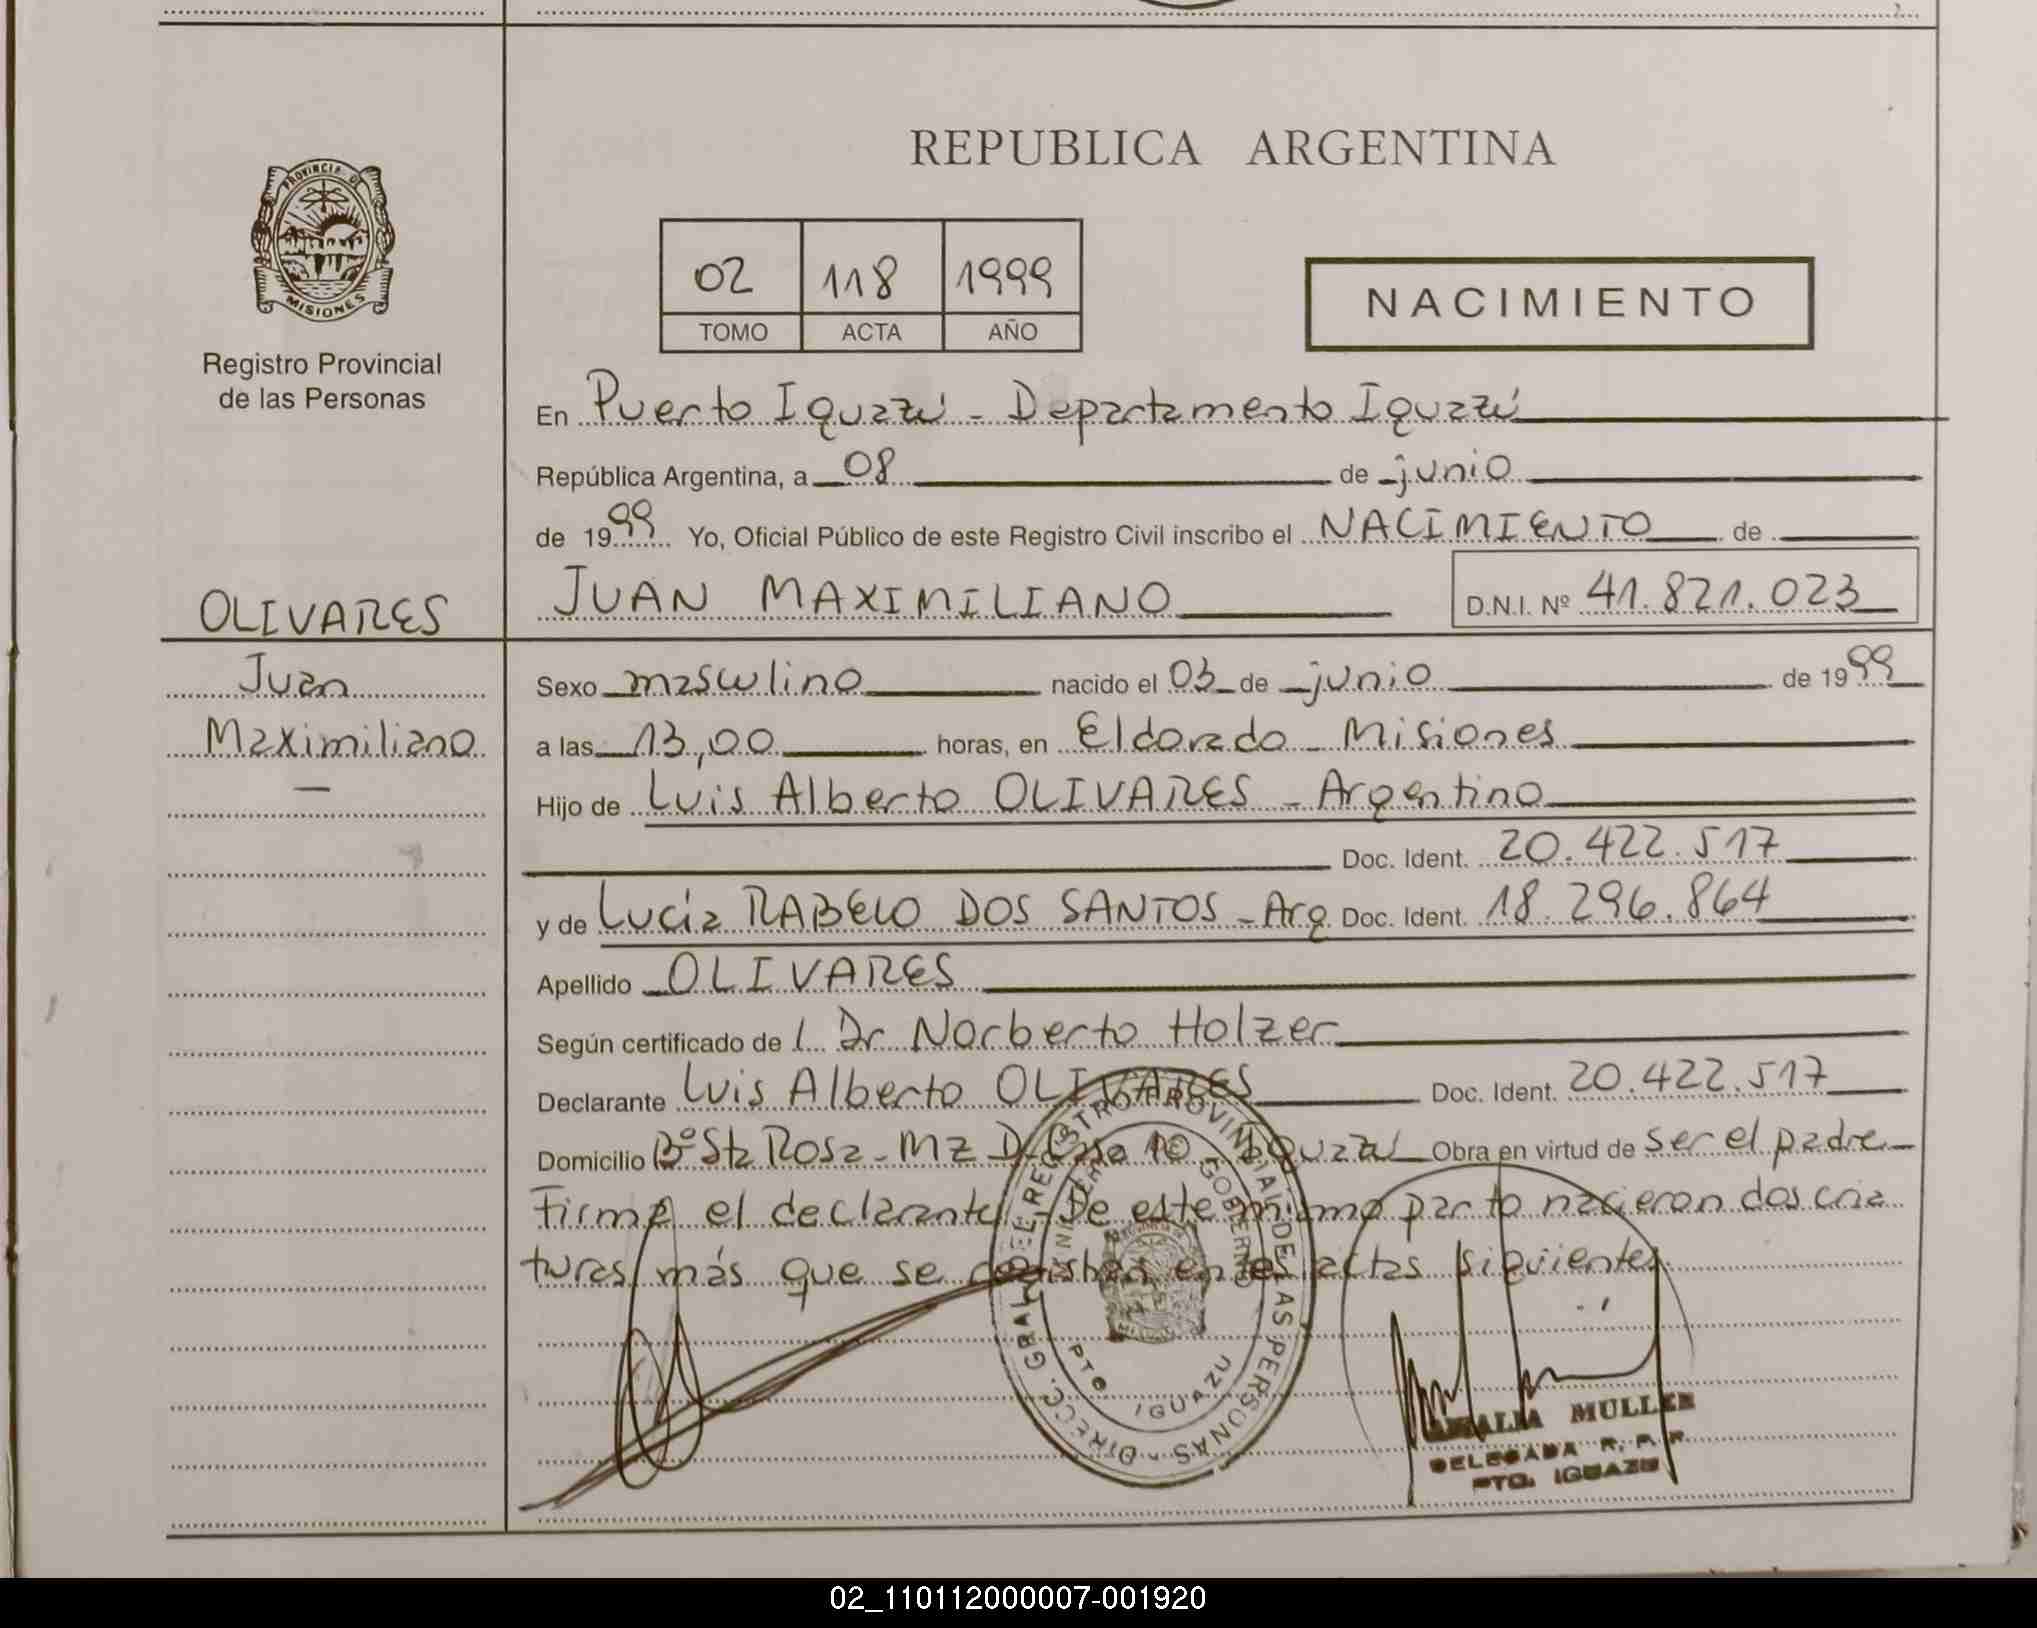 REPUBLICA ARGENTINA
PROVINCIA DE
MISIONES
Registro Provincial
de las Personas
02 118 1999
TOMO ACTA AÑO
NACIMIENTO
En Puerto Iguazú - Departamento Iguazú
República Argentina, a 08 de junio
de 1999 Yo, Oficial Público de este Registro Civil inscribo el NACIMIENTO de
OLIVARES
JUAN MAXIMILIANO D.N.I. Nº 41.821.023
Juan
Maximiliano
—
Sexo masculino nacido el 03 de junio de 1999
a las 13,00 horas, en Eldorado - Misiones
Hijo de Luis Alberto OLIVARES - Argentino
Doc. Ident. 20.422.517
y de Lucía RABELO DOS SANTOS - Arg. Doc. Ident. 18.296.864
Apellido OLIVARES
Según certificado de l Dr Norberto Holzer
Declarante Luis Alberto OLIVARES Doc. Ident. 20.422.517
Domicilio Bº Sta Rosa - Mz D Casa 10 - Iguazú Obra en virtud de ser el padre
Firma el declarante - De este mismo parto nacieron dos cria
turas más que se registran en las actas siguientes
DIRECC. GRAL. DEL REGISTRO PROVINCIAL DE LAS PERSONAS
GOBIERNO
PTO IGUAZU
MULLER
DELEGADA R. P. P.
PTO. IGUAZU
02_110112000007-001920